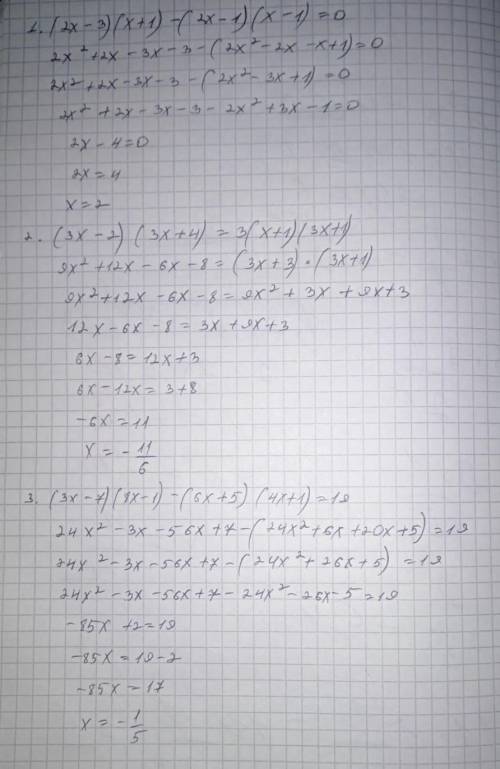 1. (2x-3)(x+1)-(2x-1)(x-1)=0
2x²+2x-3x-3-(2x²-2x-x+1)=0
2x²+2x-3x-3-(2x²-3x+1)=0
2x²+2x-3x-3-2x²+3x-1=0
2x-4=0
2x=4
x=2
2. (3x-2)(3x+4)=3(x+1)(3x+1)
9x²+12x-6x-8=(3x+3)·(3x+1)
9x²+12x-6x-8=9x²+3x+9x+3
12x-6x-8=3x+9x+3
6x-8=12x+3
6x-12x=3+8
-6x=11
x=-11/6
3. (3x-7)(8x-1)-(6x+5)(4x+1)=19
24x²-3x-56x+7-(24x²+6x+20x+5)=19
24x²-3x-56x+7-(24x²+26x+5)=19
24x²-3x-56x+7-24x²-26x-5=19
-85x+2=19
-85x=19-2
-85x=17
x=-1/5